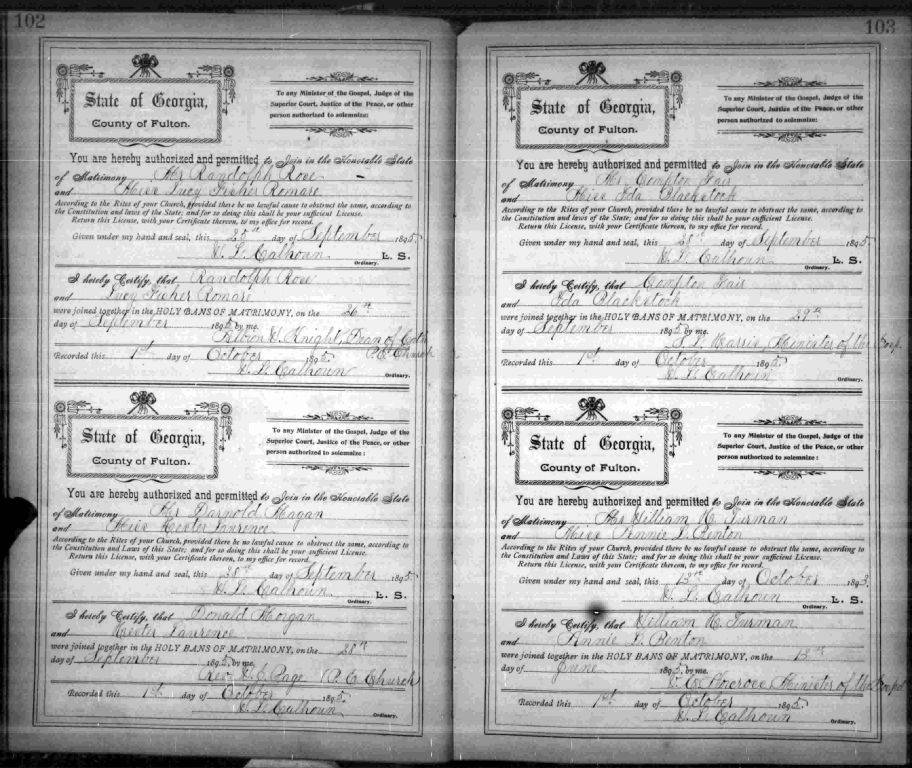 102
State of Georgia,
County of Fulton.
To any Minister of the Gospel, Judge of the
Superior Court, Justice of the Peace, or other
person authorized to solemnize:
You are hereby authorized and permitted to Join in the Honorable State
of Matrimony Mr Randolph Rose
and Miss Lucy Fisher Romare
According to the Rites of your Church, provided there be no lawful cause to obstruct the same, according to
the Constitution and laws of the State; and for so doing this shall be your sufficient License.
Return this License, with your Certificate thereon, to my office for record.
Given under my hand and seal, this 25th day of September 1895.
W. L. Calhoun L. S.
Ordinary.
I hereby Certify, that Randolph Rose
and Lucy Fisher Romare
were joined together in the HOLY BANS OF MATRIMONY, on the 26th
day of September 1895 by me.
Knight, Dean of
P.E. Church
Recorded this 1st day of October 1895.
W. L. Calhoun Ordinary.
State of Georgia,
County of Fulton.
To any Minister of the Gospel, Judge of the
Superior Court, Justice of the Peace, or other
person authorized to solemnize:
You are hereby authorized and permitted to Join in the Honorable State
of Matrimony Mr Magan
and Miss Hester Lawrence
According to the Rites of your Church, provided there be no lawful cause to obstruct the same, according to
the Constitution and Laws of this State; and for so doing this shall be your sufficient License.
Return this License, with your Certificate thereon, to my office for record.
Given under my hand and seal, this 28th day of September 1895.
W. L. Calhoun L. S.
Ordinary.
I hereby Certify, that Donald Morgan
and Hester Lawrence
were joined together in the HOLY BANS OF MATRIMONY, on the 28th
day of September 1895, by me.
Rev. Page Church
Recorded this 1st day of October 1895.
W. L. Calhoun Ordinary.
103
State of Georgia,
County of Fulton.
To any Minister of the Gospel, Judge of the
Superior Court, Justice of the Peace, or other
person authorized to solemnize:
You are hereby authorized and permitted to Join in the Honorable State
of Matrimony Mr. Compton Fair
and Miss Ida Blackstock
According to the Rites of your Church, provided there be no lawful cause to obstruct the same, according to
the Constitution and laws of the State; and for so doing this shall be your sufficient License.
Return this License, with your Certificate thereon, to my office for record.
Given under my hand and seal, this 28th day of September 1895.
W. L. Calhoun L. S.
Ordinary.
I hereby Certify, that Compton Fair
and Ida Blackstock
were joined together in the HOLY BANS OF MATRIMONY, on the 29th
day of September 1895 by me.
Harris, Minister of the Gosp.
Recorded this 1st day of October 1895
W. L. Calhoun Ordinary.
State of Georgia,
County of Fulton.
To any Minister of the Gospel, Judge of the
Superior Court, Justice of the Peace, or other
person authorized to solemnize:
You are hereby authorized and permitted to Join in the Honorable State
of Matrimony Mr William H.
and Miss Annie L. Benton
According to the Rites of your Church, provided there be no lawful cause to obstruct the same, according to
the Constitution and Laws of this State; and for so doing this shall be your sufficient License.
Return this License, with your Certificate thereon, to my office for record.
Given under my hand and seal, this day of October 1895.
W. L. Calhoun L. S.
Ordinary.
I hereby Certify, that William H.
and Annie L. Benton
were joined together in the HOLY BANS OF MATRIMONY, on the
day of June 1895, by me.
Minister of the Gospel
Recorded this 1st day of October 1895.
W. L. Calhoun Ordinary.